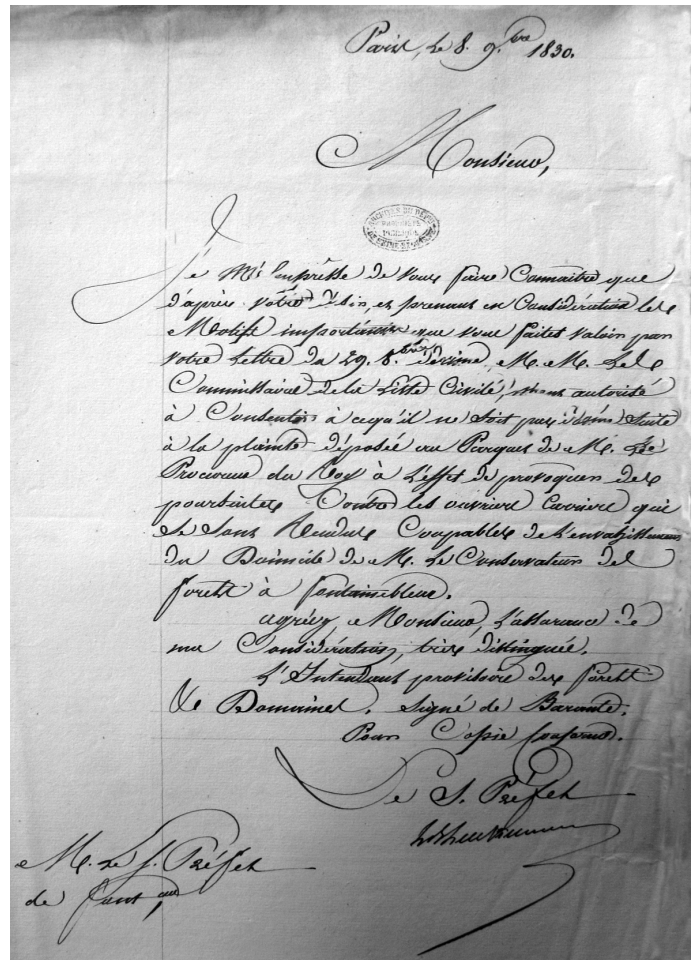 Paris, le 8. 9.bre 1830.
Monsieur,
ARCHIVES DU DÉPT
DE SEINE-ET-MARNE
Je m'empresse de vous faire Connaitre que
d'après votre désir, et prenant en Considération les
Motifs importants que vous faites valoir par
votre Lettre du 29. 8.bre dernier, M. M. Les
Commissaires de la Liste Civile, m'ont autorisé
à Consentir à ce qu'il ne soit pas donné suite
à la plainte déposée au Parquet de M. Le
Procureur du Roy à l'effet de provoquer des
poursuites Contre les ouvriers Carriers qui
se sont Rendus Coupables de l'envahissement
du Domicile de M. Le Conservateur des
forêts à fontainebleau.
agréez, Monsieur, l'assurance de
ma Considération, très distinguée.
L'Intendant provisoire des forêts
& Domaines. Signé de Barante.
Pour Copie Conforme.
Le S. Préfet
M. Le S. Préfet
de font.au,